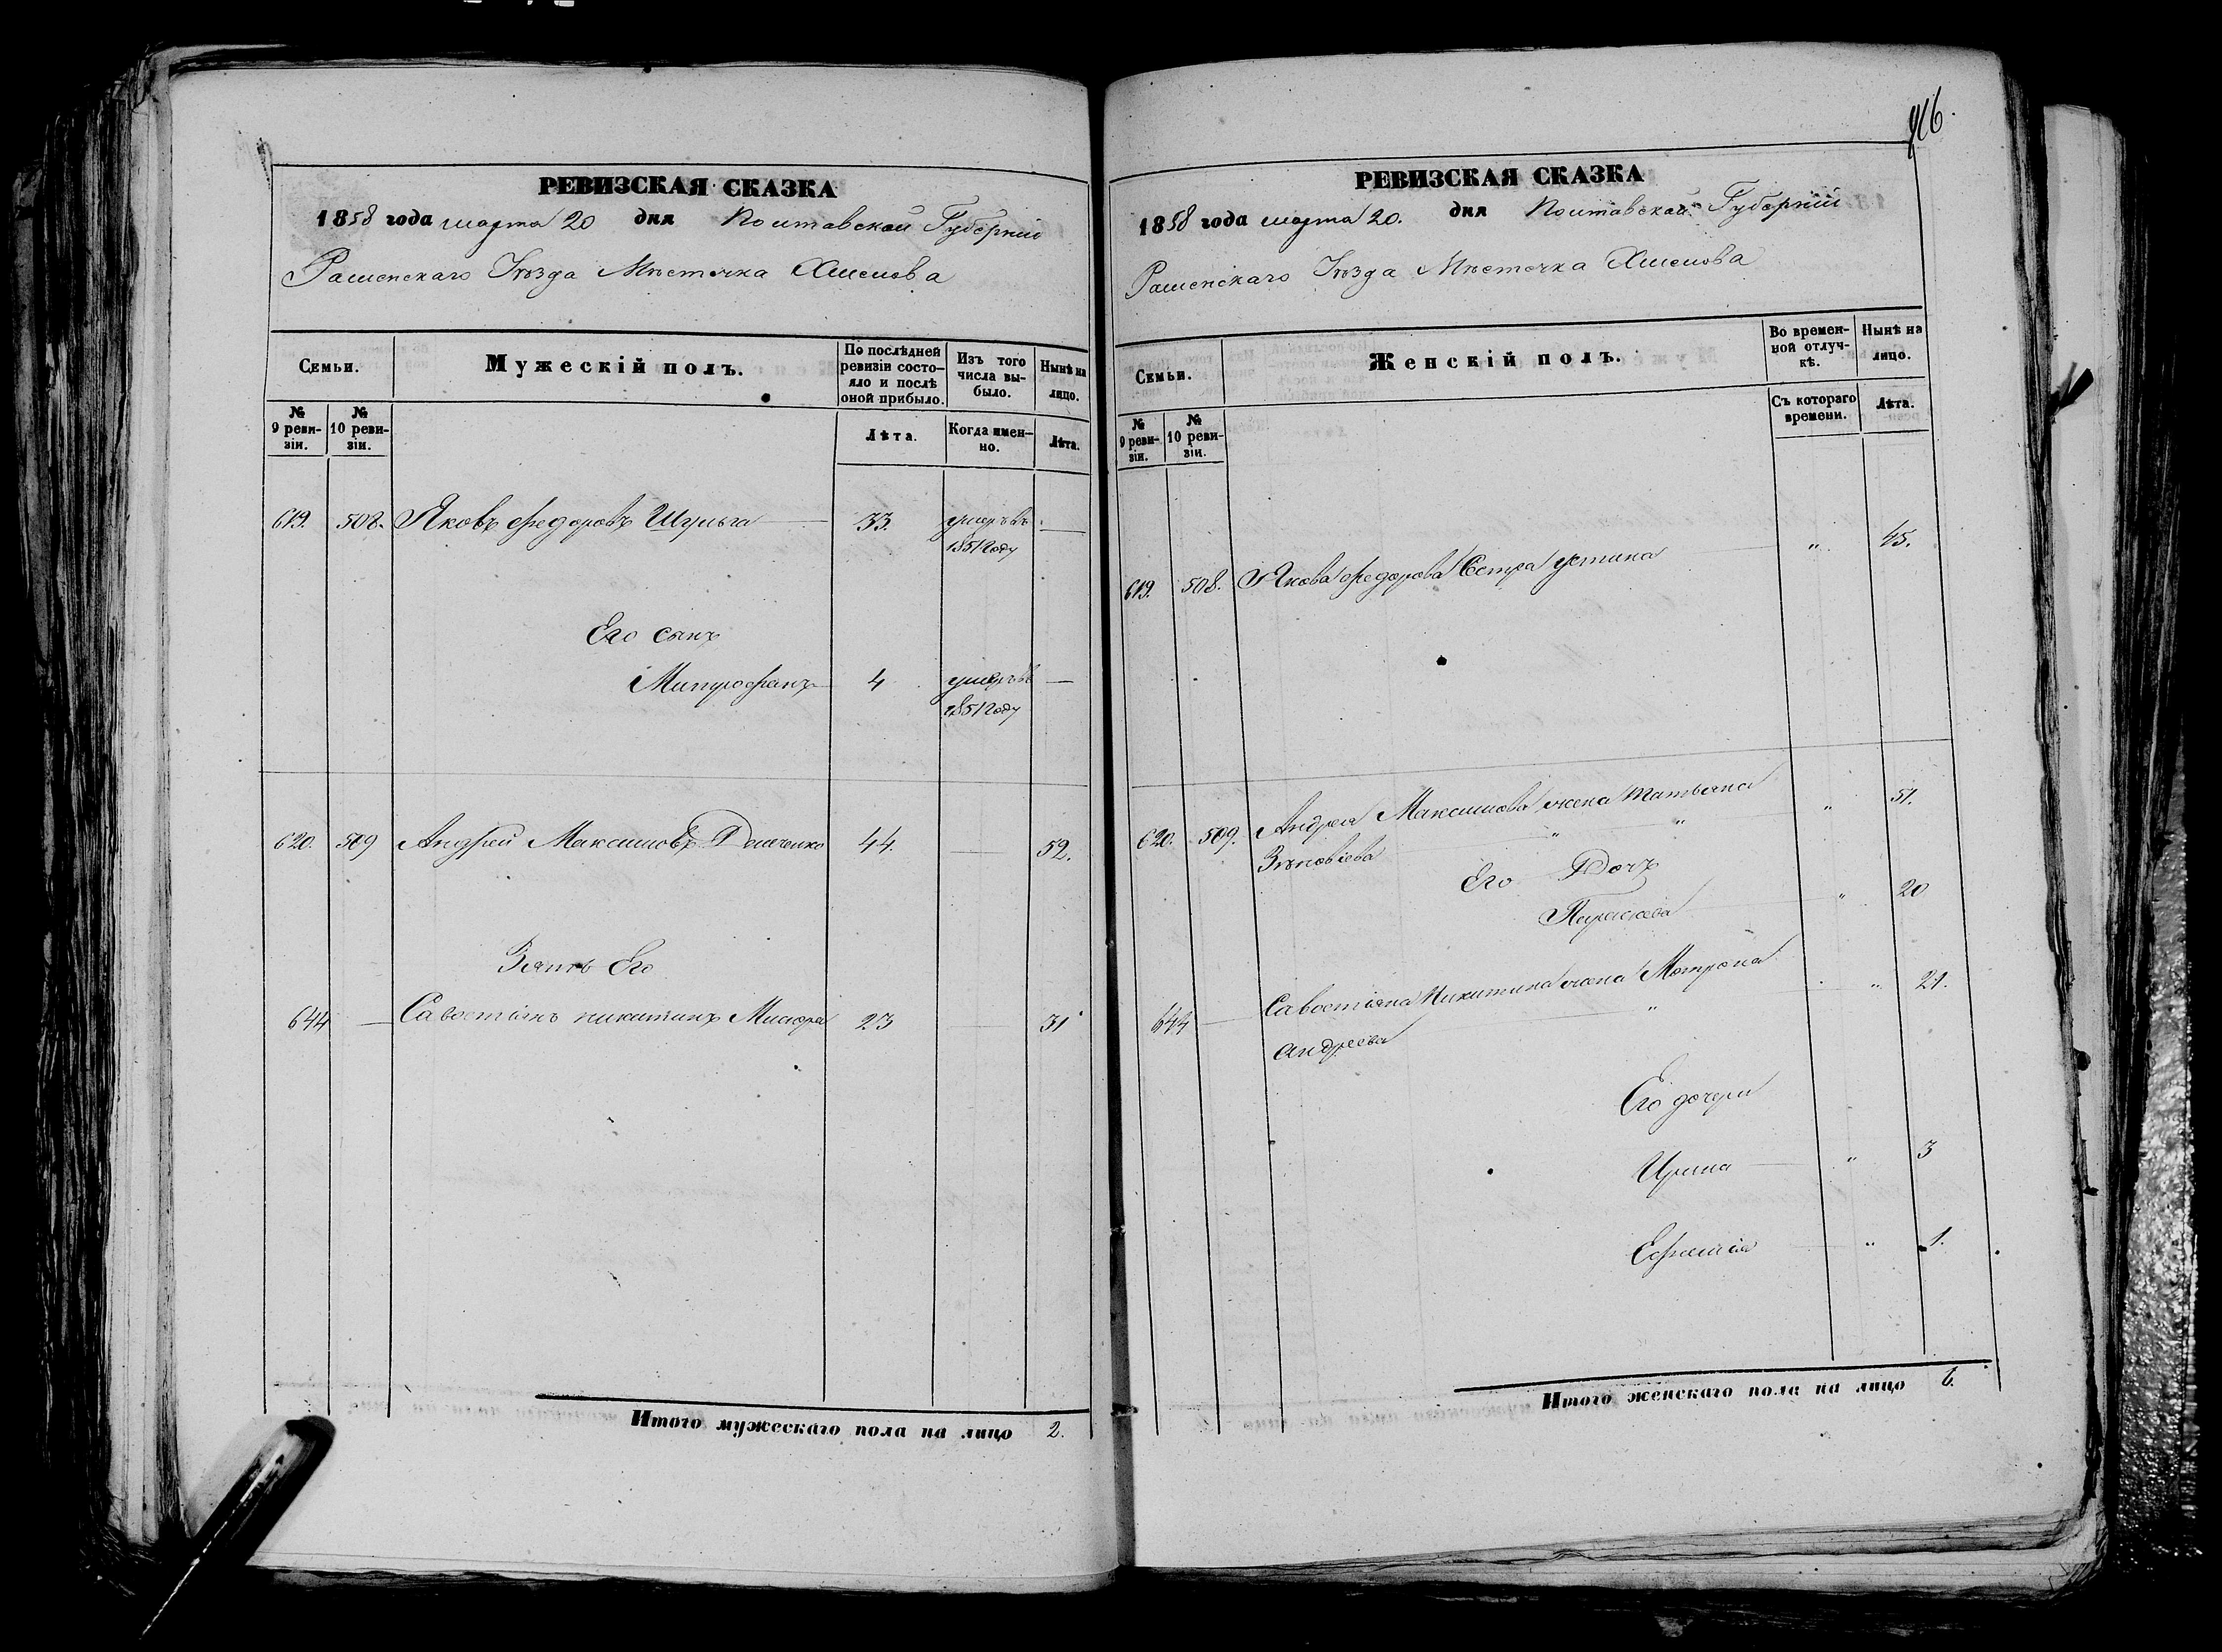 РЕВИЗСКАЯ СКАЗКА
1858 года марта 20 дня Полтавской Губерніи
Роменскаго Уѣзда Мѣстечка Хмелова
Семьи.
Мужескій полъ.
По послѣдней ревизіи состо-
яло и послѣ
оной прибыло.
Изъ того
числа вы-
было.
Нынѣ на
лицо.
№
9 реви-
зіи.
№
10 реви-
зіи.
Лѣта.
Когда имен-
но.
Лѣта.
619. 508. Яковъ Федоровъ 33. умеръ въ —
1851 году
Его сынъ
Митрофанъ 4 умеръ въ —
1851 году
620. 509 Андрей Максимовъ Демченко 44. — 52.
Зять Его
644 — Савостіянъ Никитинъ 23 — 31
Итого мужескаго пола на лицо 2.
116.
РЕВИЗСКАЯ СКАЗКА
1858 года марта 20. дня Полтавской Губерніи
Роменскаго Уѣзда Мѣстечка Хмелова
Семьи.
Женскій полъ.
Во времен-
ной отлуч-
кѣ.
Нынѣ на
лицо.
№
9 реви-
зіи.
№
10 реви-
зіи.
Съ котораго
времени.
Лѣта.
619. 508. Якова Федорова Сестра Устина " 45.
620. 509. Андрея Максимова жена Татьяна " 51.
Зѣновіева " "
Его Дочь
Параскева " 20
644 — Савостіяна Никитина жена Мотрона " 21.
Андреева "
Его дочери
Ирина " 3
Ефимія " 1.
Итого женскаго пола на лицо 6.